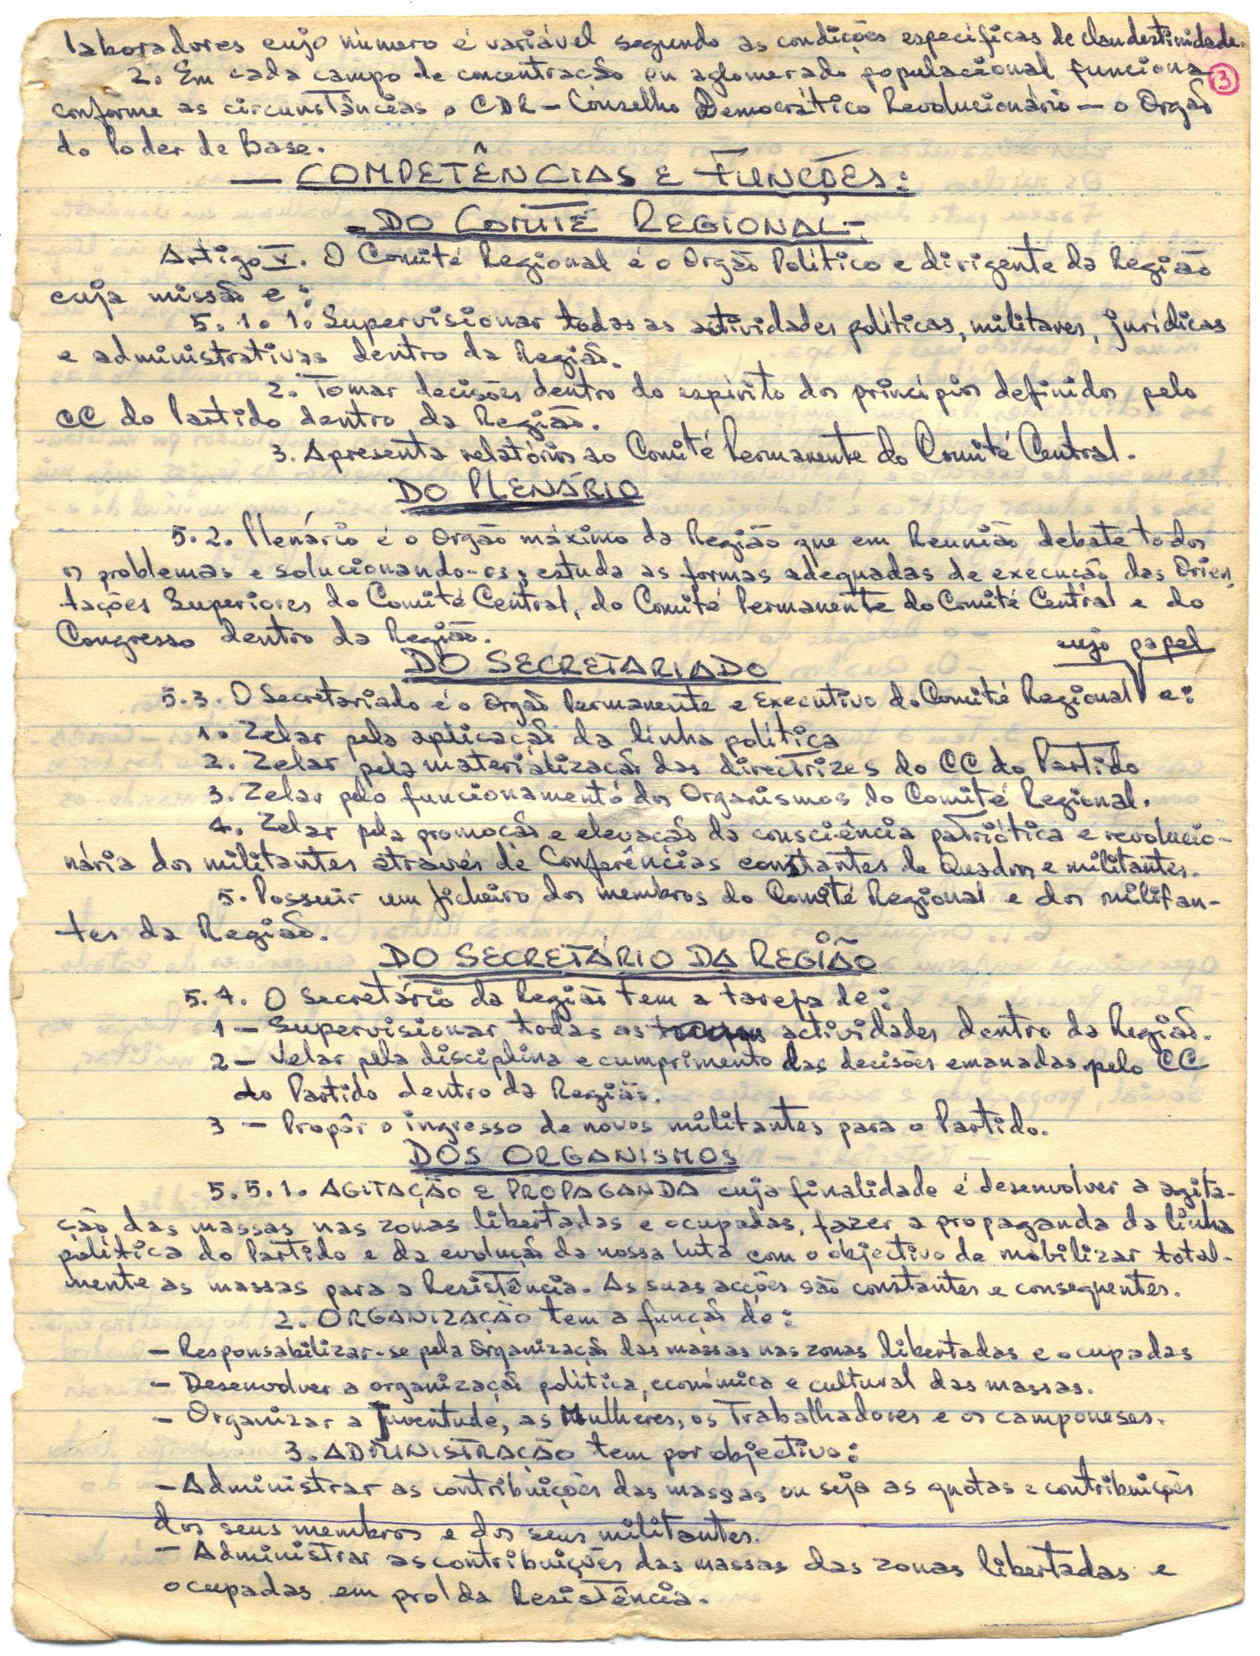 laboradores cujo número é variável segundo as condições específicas de clandestinidade.
2. Em cada campo de concentração ou aglomerado populacional funciona
3
conforme as circunstâncias o CDR - Conselho Democrático Revolucionário - o Orgão
do Poder de Base.
- COMPETÊNCIAS E FUNÇÕES:
- DO COMITÉ REGIONAL -
Artigo V. O Comité Regional é o Orgão Político e dirigente da Região
cuja missão e:
5.1.1. Supervisionar todas as actividades políticas, militares, jurídicas
e administrativas dentro da Região.
2. Tomar decisões dentro do espírito dos princípios definidos pelo
CC do Partido dentro da Região.
3. Apresenta relatórios ao Comité Permanente do Comité Central.
DO PLENÁRIO
5.2. Plenário é o Orgão máximo da Região que em Reunião debate todos
os problemas e solucionando-os; estuda as formas adequadas de execução das Orien-
tações Superiores do Comité Central, do Comité Permanente do Comité Central e do
Congresso dentro da Região.
cujo papel
DO SECRETARIADO
5.3. O Secretariado é o Orgão Permanente e Executivo do Comité Regional e:
1. Zelar pela aplicação da linha política
2. Zelar pela materialização das directrizes do CC do Partido
3. Zelar pelo funcionamento dos Organismos do Comité Regional.
4. Zelar pela promoção e elevação da consciência patriótica e revolucio-
nária dos militantes através de Conferências constantes de Quadros e militantes.
5. Possuir um ficheiro dos membros do Comité Regional e dos militan-
tes da Região.
DO SECRETÁRIO DA REGIÃO
5.4. O Secretário da Região tem a tarefa de:
1 - Supervisionar todas as actividades dentro da Região.
2 - Velar pela disciplina e cumprimento das decisões emanadas pelo CC
do Partido dentro da Região.
3 - Propôr o ingresso de novos militantes para o Partido.
DOS ORGANISMOS
5.5.1. AGITAÇÃO E PROPAGANDA cuja finalidade é desenvolver a agita-
ção das massas nas zonas libertadas e ocupadas, fazer a propaganda da linha
política do Partido e da evolução da nossa luta com o objectivo de mobilizar total-
mente as massas para a Resistência. As suas acções são constantes e consequentes.
2. ORGANIZAÇÃO tem a função de:
- Responsabilizar-se pela Organização das massas nas zonas libertadas e ocupadas
- Desenvolver a organização política, económica e cultural das massas.
- Organizar a Juventude, as Mulheres, os Trabalhadores e os camponeses.
3. ADMINISTRAÇÃO tem por objectivo:
- Administrar as contribuições das massas ou seja as quotas e contribuições
dos seus membros e dos seus militantes.
- Administrar as contribuições das massas das zonas libertadas e
ocupadas em prol da Resistência.